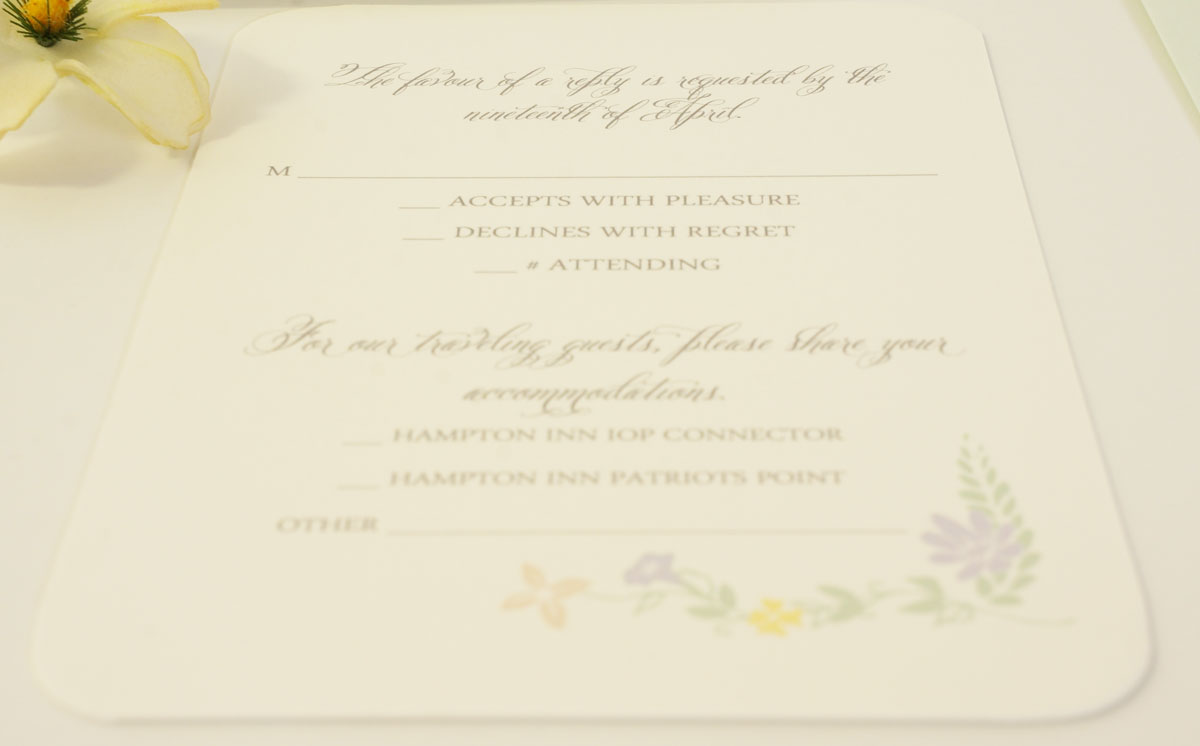 The favour of a reply is requested by the
nineteenth of April.
M ____
___ ACCEPTS WITH PLEASURE
___ DECLINES WITH REGRET
___ # ATTENDING
For our traveling guests, please share your
accommodations.
___ HAMPTON INN IOP CONNECTOR
___ HAMPTON INN PATRIOTS POINT
OTHER ____